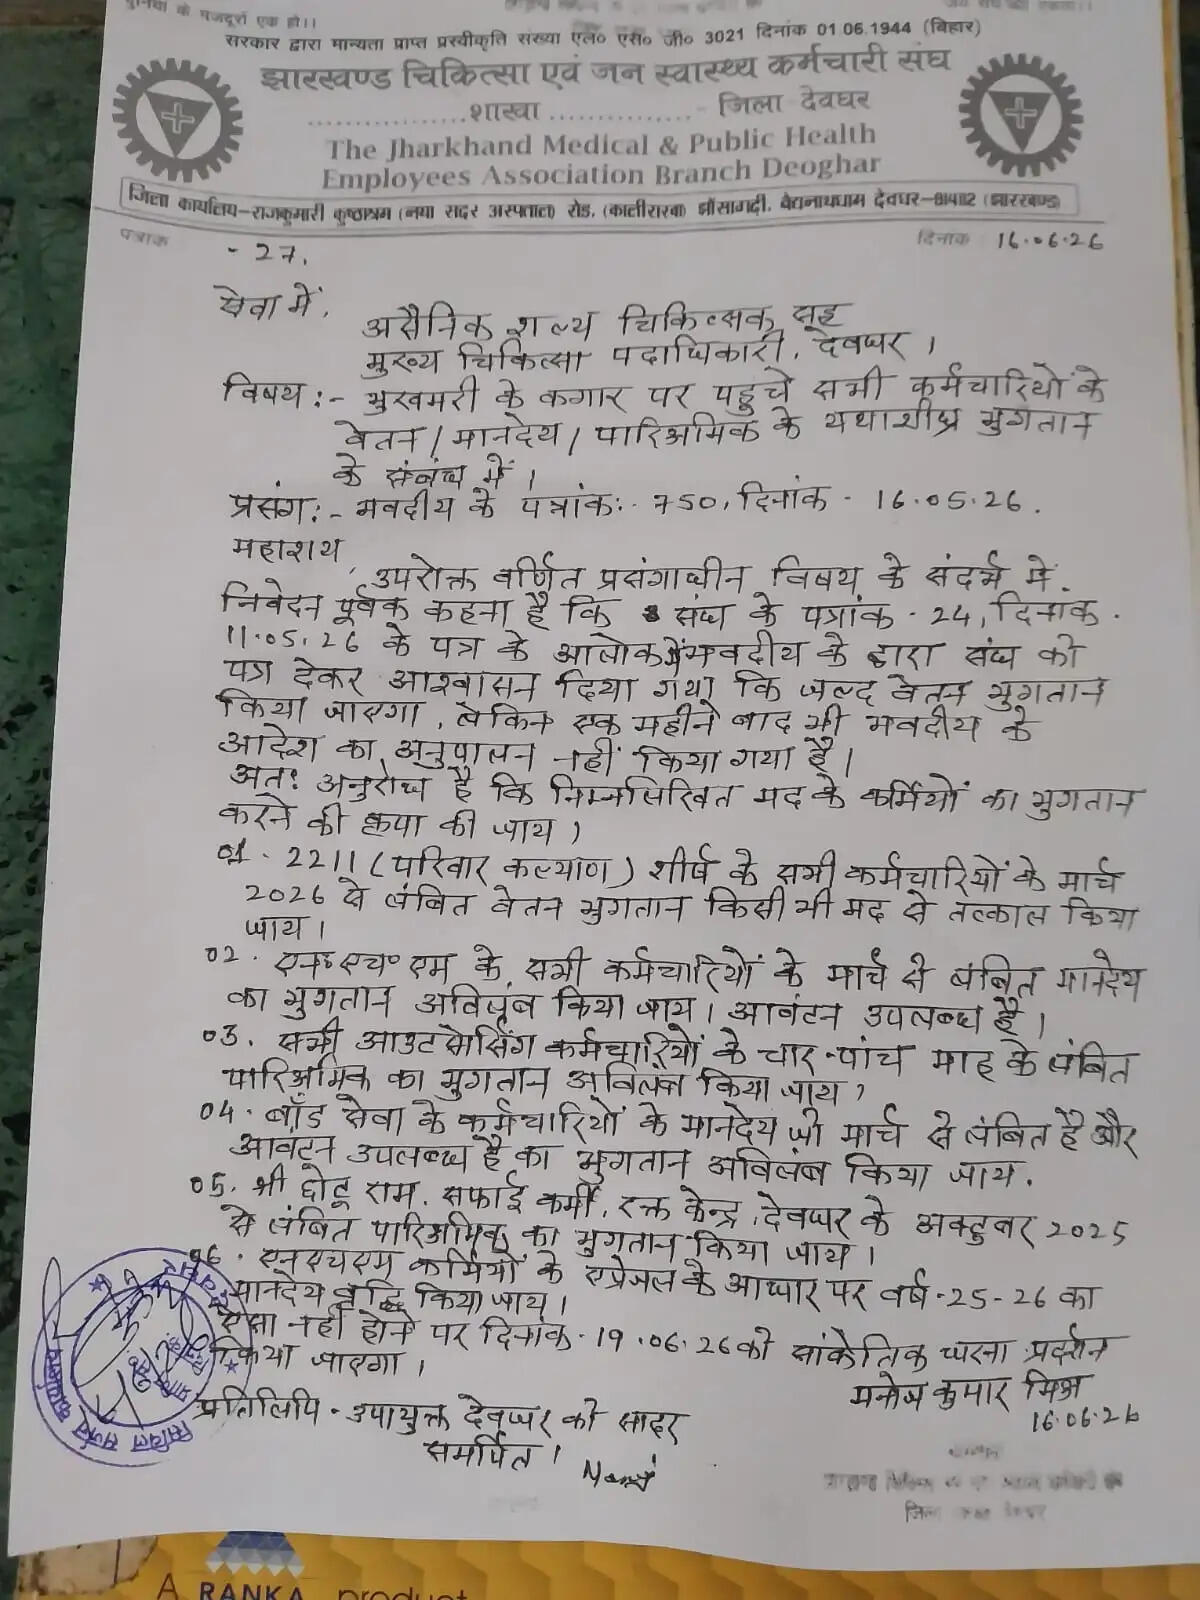 दुनिया के मजदूरों एक हो।।
सरकार द्वारा मान्यता प्राप्त प्रस्वीकृति संख्या एल० एस० जी० 3021 दिनांक 01 06.1944 (बिहार)
झारखण्ड चिकित्सा एवं जन स्वास्थ्य कर्मचारी संघ
................शाखा ............... जिला देवघर
The Jharkhand Medical & Public Health
Employees Association Branch Deoghar
जिला कार्यालय-राजकुमारी कुष्ठाश्रम (नया सदर अस्पताल) रोड, (कालीराखा) झौंसागढ़ी, वैद्यनाथधाम देवघर-814112 (झारखण्ड)
पत्रांक - 27. दिनांक 16.06.26
सेवा में,
असैनिक शल्य चिकित्सक सह
मुख्य चिकित्सा पदाधिकारी, देवघर ।
विषय :- भुखमरी के कगार पर पहुचे सभी कर्मचारियों के
वेतन / मानदेय / पारिश्रमिक के यथाशीघ्र भुगतान
के संबंध में ।
प्रसंग :- भवदीय के पत्रांक :- 750, दिनांक - 16.05.26.
महाशय,
उपरोक्त वर्णित प्रसंगाधीन विषय के संदर्भ में.
निवेदन पूर्वक कहना है कि संघ के पत्रांक - 24, दिनांक -
11.05.26 के पत्र के आलोक में भवदीय के द्वारा संघ को
पत्र देकर आश्वासन दिया गया कि जल्द वेतन भुगतान
किया जाएगा, लेकिन एक महीने बाद भी भवदीय के
आदेश का अनुपालन नहीं किया गया है ।
अतः अनुरोध है कि निम्नलिखित मद के कर्मियों का भुगतान
करने की कृपा की जाय ।
01. 2211 (परिवार कल्याण) शीर्ष के सभी कर्मचारियों के मार्च
2026 से लंबित वेतन भुगतान किसी भी मद से तत्काल किया
जाय ।
02. एन० एच० एम के सभी कर्मचारियों के मार्च से लंबित मानदेय
का भुगतान अविलंब किया जाय । आवंटन उपलब्ध है ।
03. सभी आउटसोर्सिंग कर्मचारियों के चार-पांच माह के लंबित
पारिश्रमिक का भुगतान अविलंब किया जाय ।
04. बॉंड सेवा के कर्मचारियों के मानदेय जो मार्च से लंबित है और
आवंटन उपलब्ध है का भुगतान अविलंब किया जाय.
05. श्री छोटू राम, सफाई कर्मी, रक्त केन्द्र, देवघर के अक्टुबर 2025
से लंबित पारिश्रमिक का भुगतान किया जाय ।
06. एनएचएम कर्मियों के एप्रेजल के आधार पर वर्ष - 25-26 का
मानदेय वृद्धि किया जाय ।
ऐसा नहीं होने पर दिनांक - 19.06.26 को सांकेतिक धरना प्रर्दशन
किया जाएगा ।
मनोज कुमार मिश्र
16.06.26
प्रतिलिपि - उपायुक्त देवघर को सादर
समर्पित ।
A RANKA product